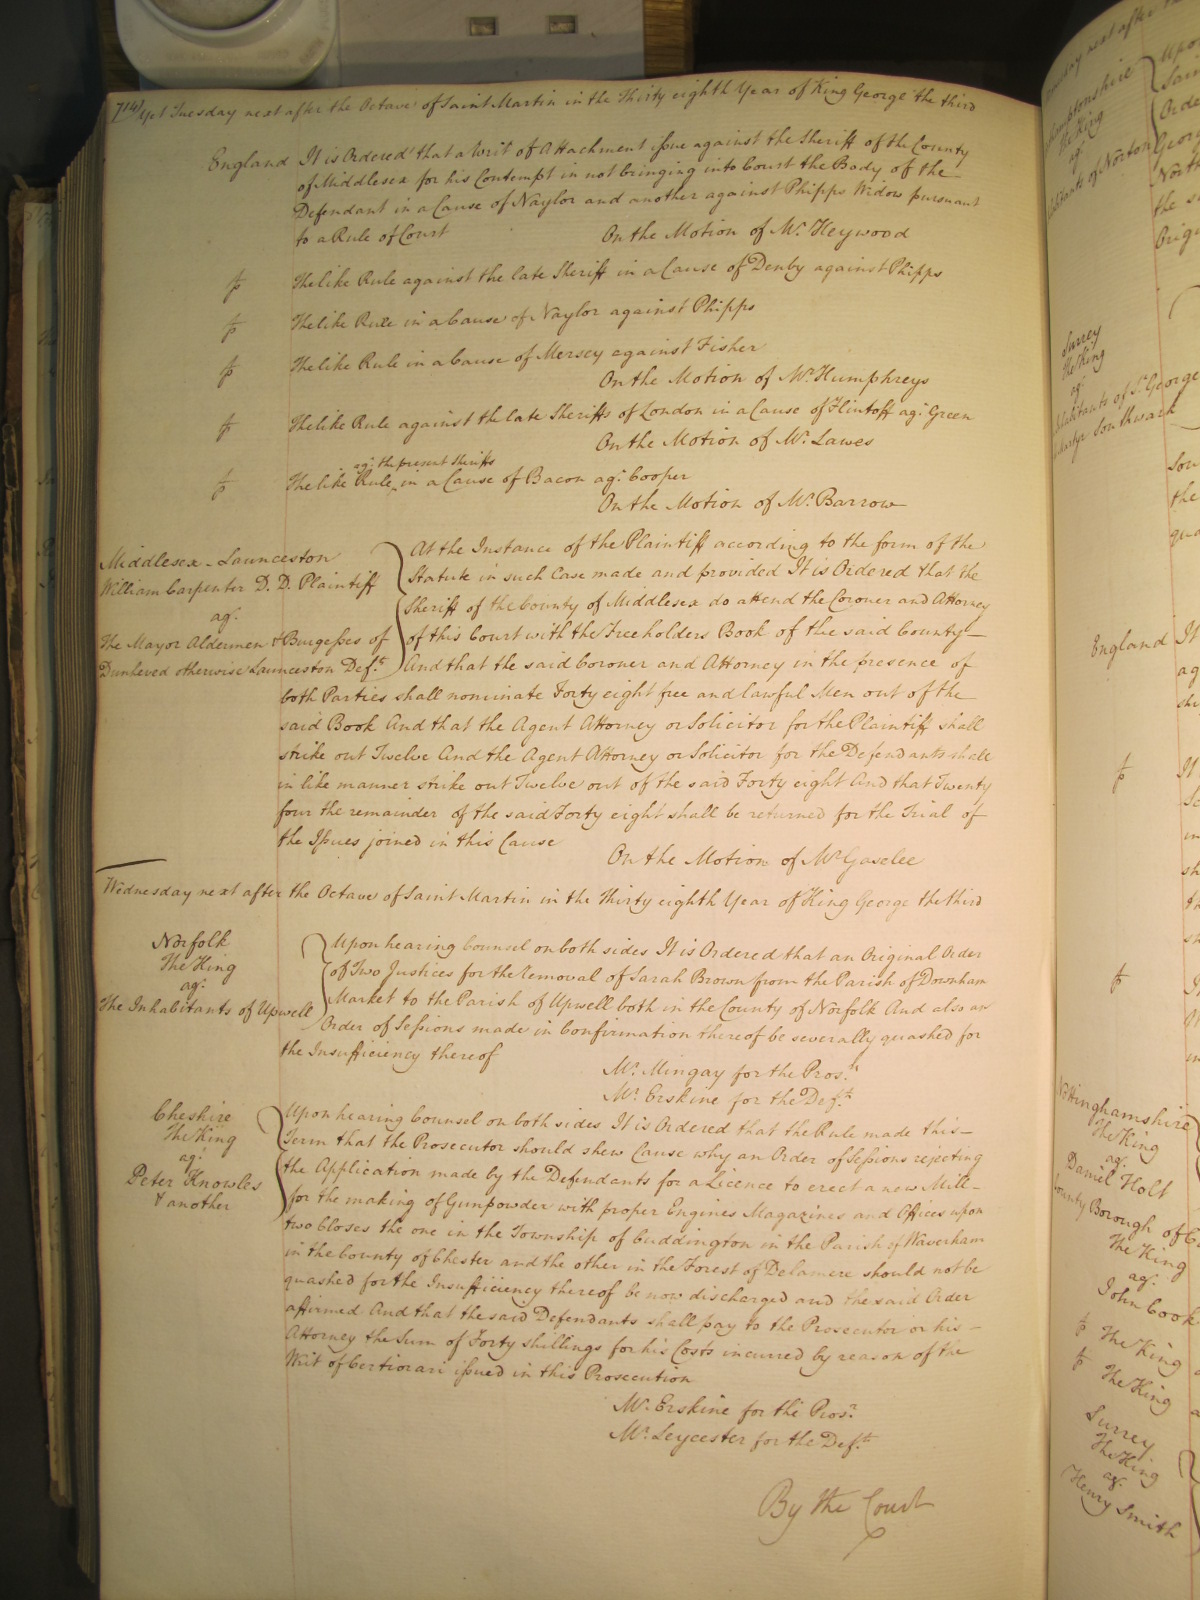 714) Yet Tuesday next after the Octave of Saint Martin in the Thirty eighth Year of King George the third
England It is Ordered that a Writ of Attachment issue against the Sheriff of the County
of Middlesex for his Contempt in not bringing into Court the Body of the
Defendant in a Cause of Naylor and another against Phipps Widow pursuant
to a Rule of Court
On the Motion of Mr. Heywood
The like Rule against the late Sheriff in a Cause of Denby against Phipps
The like Rule in a Cause of Naylor against Phipps
The like Rule in a Cause of Mersey against Fisher
On the Motion of Mr. Humphreys
The like Rule against the late Sheriffs of London in a Cause of Flintoff agt. Green
On the Motion of Mr. Lawes
agt. the present Sheriffs
The like Rule in a Cause of Bacon agt. Cooper
On the Motion of Mr. Barrow
Middlesex - Launceston
William Carpenter D. D. Plaintiff
agt.
The Mayor Aldermen & Burgesses of
Dunheved otherwise Launceston Defts.
At the Instance of the Plaintiff according to the form of the
Statute in such Case made and provided It is Ordered that the
Sheriff of the County of Middlesex do attend the Coroner and Attorney
of this Court with the Freeholders Book of the said County
And that the said Coroner and Attorney in the presence of
both Parties shall nominate Forty eight free and lawful Men out of the
said Book And that the Agent Attorney or Solicitor for the Plaintiff shall
strike out Twelve And the Agent Attorney or Solicitor for the Defendants shall
in like manner strike out Twelve out of the said Forty eight And that Twenty
four the remainder of the said Forty eight shall be returned for the Trial of
the Issues joined in this Cause
On the Motion of Mr. Gaselee
Wednesday next after the Octave of Saint Martin in the Thirty eighth Year of King George the third
Norfolk
The King
agt.
The Inhabitants of Upwell
Upon hearing Counsel on both sides It is Ordered that an Original Order
of Two Justices for the removal of Sarah Brown from the Parish of Downham
Market to the Parish of Upwell both in the County of Norfolk And also an
Order of Sessions made in Confirmation thereof be severally quashed for
the Insufficiency thereof
Mr. Mingay for the Prosr.
Mr. Erskine for the Defts.
Cheshire
The King
agt.
Peter Knowles
& another
Upon hearing Counsel on both sides It is Ordered that the Rule made this
Term that the Prosecutor should shew Cause why an Order of Sessions rejecting
the Application made by the Defendants for a Licence to erect a new Mill
for the making of Gunpowder with proper Engines Magazines and Offices upon
two Closes the one in the Township of Cuddington in the Parish of Waverham
in the County of Chester and the other in the Forest of Delamere should not be
quashed for the Insufficiency thereof be now discharged and the said Order
affirmed And that the said Defendants shall pay to the Prosecutor or his
Attorney the Sum of Forty shillings for his Costs incurred by reason of the
Writ of Certiorari issued in this Prosecution
Mr. Erskine for the Prosr.
Mr. Leycester for the Defts.
By the Court
The King
agt.
Surrey
The King
agt.
Inhabitants of St. George
Martyr Southwark
England It
Nottinghamshire
The King
agt.
Daniel Holt
County Borough of
The King
agt.
John Cook
The King
The King
Surrey
The King
agt.
Henry Smith